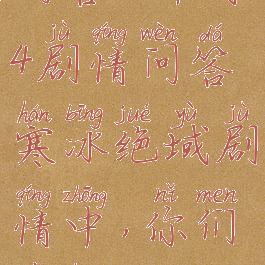 jù qíng wèn dá
4剧情问答
hán bīng jué yù jù
寒冰绝域剧
qíng zhōng nǐ men
情中，你们